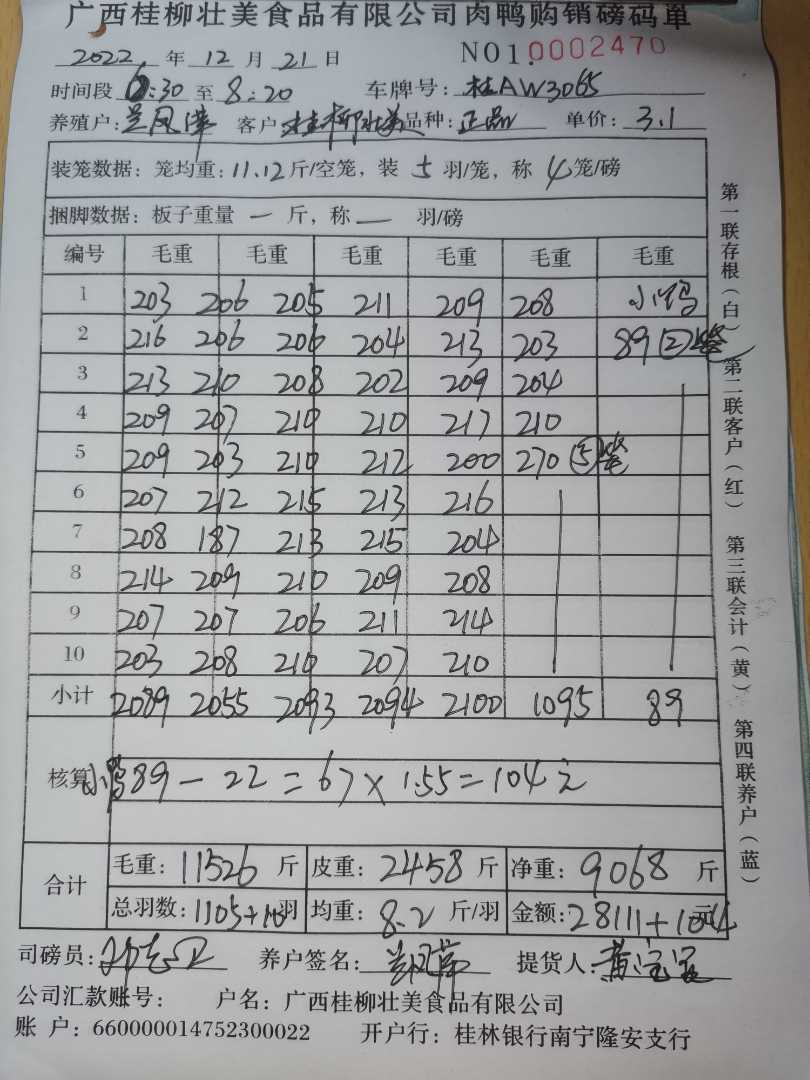 广西桂柳壮美食品有限公司肉鸭购销磅码单
2022 年 12 月 21 日 NO1.0002470
时间段 6:30 至 8:20 车牌号: 桂AW3065
养殖户: 兰凤 客户 桂柳壮美 品种: 正品 单价: 3.1
装笼数据: 笼均重: 11.12 斤/空笼, 装 5 羽/笼, 称 4 笼/磅
捆脚数据: 板子重量 一 斤, 称 一 羽/磅
编号 毛重 毛重 毛重 毛重 毛重 毛重
1 203 206 205 211 209 208 小鸭
2 216 206 206 204 213 203 89 ②笼
3 213 210 208 202 209 204
4 209 207 210 210 217 210
5 209 203 210 212 200 270 ⑤笼
6 207 212 215 213 216
7 208 187 213 215 204
8 214 209 210 209 208
9 207 207 206 211 214
10 203 208 210 207 210
小计 2089 2055 2093 2094 2100 1095 89
核算 小鸭89-22=67×1.55=104元
合计 毛重: 11526 斤 皮重: 2458 斤 净重: 9068 斤
总羽数: 1105+10 羽 均重: 8.2 斤/羽 金额: 28111+104 元
司磅员: 养户签名: 兰凤 提货人: 黄宝
公司汇款账号: 户名: 广西桂柳壮美食品有限公司
账 户: 660000014752300022 开户行: 桂林银行南宁隆安支行
第一联存根(白) 第二联客户(红) 第三联会计(黄) 第四联养户(蓝)